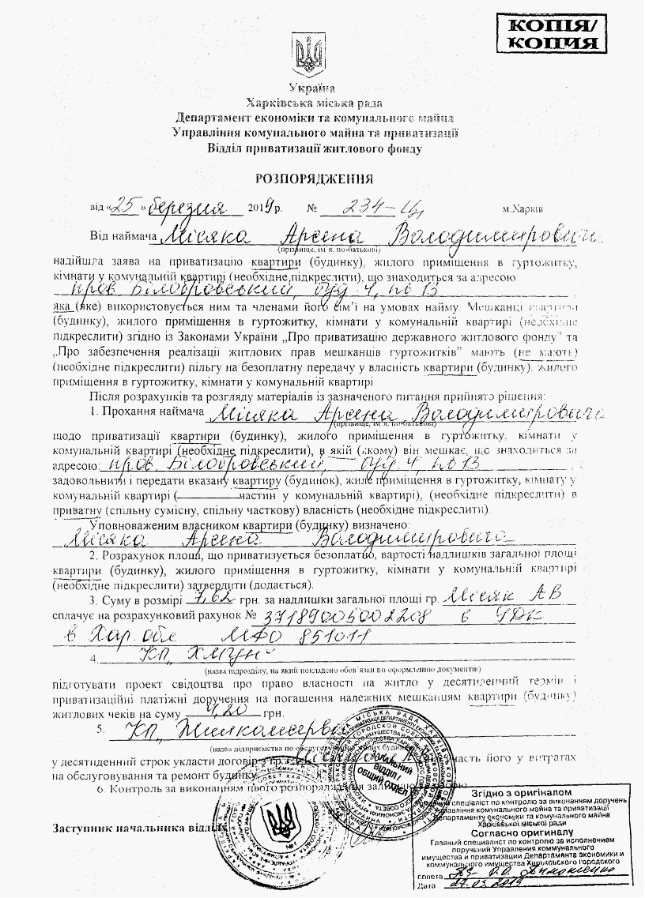 КОПІЯ/
КОПИЯ
Україна
Харківська міська рада
Департамент економіки та комунального майна
Управління комунального майна та приватизації
Відділ приватизації житлового фонду
РОЗПОРЯДЖЕННЯ
від «25» березня 2019р. № 234-Ц, м.Харків
Від наймача Місяка Арсена Володимировича
(прізвище, ім'я, по-батькові)
надійшла заява на приватизацію квартири (будинку), жилого приміщення в гуртожитку,
кімнати у комунальній квартирі (необхідне підкреслити), що знаходиться за адресою
пров. Білобровський, буд. 4, кв 13
яка (яке) використовується ним та членами його сім'ї на умовах найму. Мешканці квартири
(будинку), жилого приміщення в гуртожитку, кімнати у комунальній квартирі (необхідне
підкреслити) згідно із Законами України „Про приватизацію державного житлового фонду" та
„Про забезпечення реалізації житлових прав мешканців гуртожитків" мають (не мають)
(необхідне підкреслити) пільгу на безоплатну передачу у власність квартири (будинку), жилого
приміщення в гуртожитку, кімнати у комунальній квартирі
Після розрахунків та розгляду матеріалів із зазначеного питання прийнято рішення:
1. Прохання наймача Місяка Арсена Володимировича
(прізвище, ім'я, по-батькові)
щодо приватизації квартири (будинку), жилого приміщення в гуртожитку, кімнати у
комунальній квартирі (необхідне підкреслити), в якій (якому) він мешкає, що знаходиться за
адресою: пров. Білобровський, буд. 4, кв 13
задовольнити і передати вказану квартиру (будинок), жиле приміщення в гуртожитку, кімнату у
комунальній квартирі (частин у комунальній квартирі), (необхідне підкреслити) в
приватну (спільну сумісну, спільну часткову) власність (необхідне підкреслити).
Уповноваженим власником квартири (будинку) визначено:
Місяка Арсена Володимировича
2. Розрахунок площі, що приватизується безоплатно, вартості надлишків загальної площі
квартири (будинку), жилого приміщення в гуртожитку, кімнати у комунальній квартирі
(необхідне підкреслити) затвердити (додається).
3. Суму в розмірі 7,62 грн. за надлишки загальної площі гр. Місяк АВ
сплачує на розрахунковий рахунок № 37189005002208 в УДК
в Хар. обл МФО 851011
4. КП „ХМУН"
(назва підрозділу, на який покладено обов'язки по оформленню документів)
підготувати проект свідоцтва про право власності на житло у десятиденний термін і
приватизаційні платіжні доручення на погашення належних мешканцям квартири (будинку)
житлових чеків на суму 4,20 грн.
5. КП „Жилкомсервіс"
(назва підприємства по обслуговуванню будинку)
у десятиденний строк укласти договір про участь його у витратах
на обслуговування та ремонт будинку.
6. Контроль за виконанням цього розпорядження
Заступник начальника відділу
Загальний
відділ/
общий отдел
Згідно з оригіналом
Головний спеціаліст по контролю за виконанням доручень
Управління комунального майна та приватизації
Департаменту економіки та комунального майна
Харківської міської ради
Согласно оригиналу
Главный специалист по контролю за исполнением
поручений Управления коммунального
имущества и приватизации Департамента экономики и
коммунального имущества Харьковского городского
совета
Дата 27.03.2019